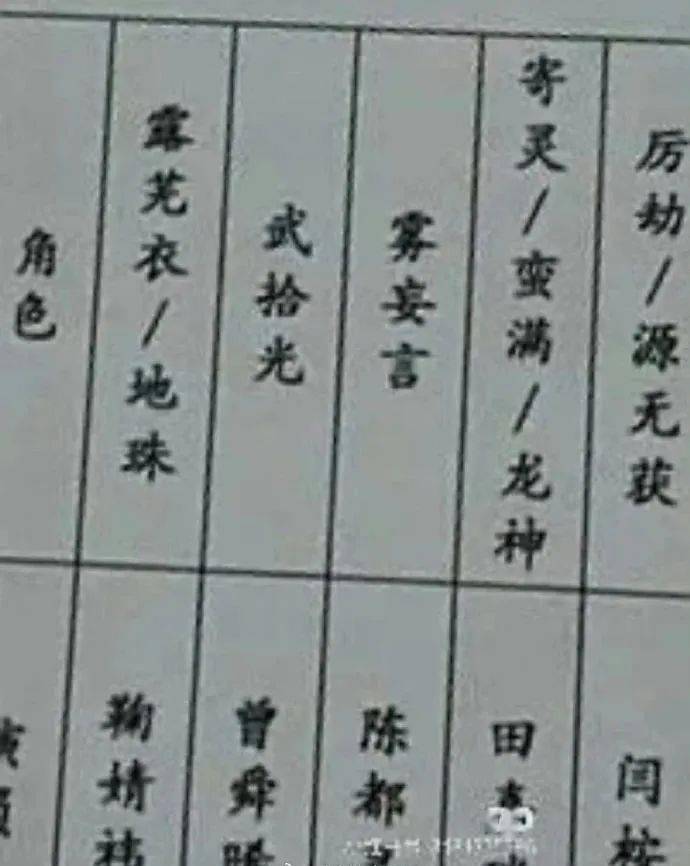 角色
露芜衣/地珠
武拾光
雾妄言
寄灵/蛮满/龙神
厉劫/源无获
鞠婧祎
曾舜晞
陈都
田
闫